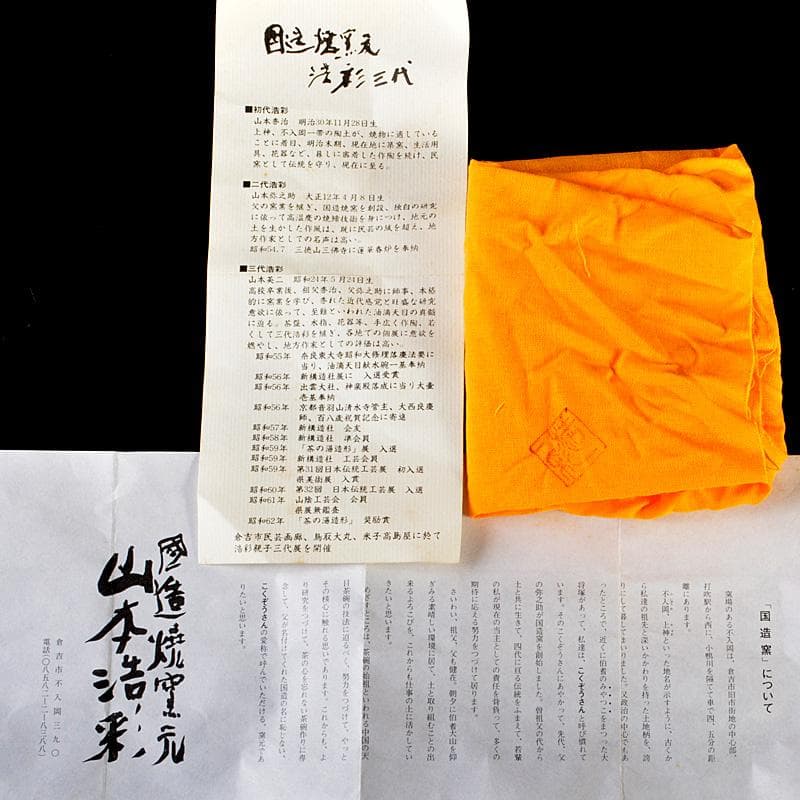 国造焼窯元
浩彩三代
■初代浩彩
山本香治 明治30年11月28日生
上神、不入岡一帯の陶土が、焼物に適している
ことに着目、明治末期、現在地に築窯、生活用
具、花器など、暮しに密着した作陶を続け、民
窯として伝統を守り、現在に至る。
■二代浩彩
山本弥之助 大正12年4月8日生
父の窯業を継ぎ、国造焼窯を創設、独自の研究
に依って高温度の焼締技術を身につけ、地元の
土を生かした作風は、既に民芸の域を超え、地
方作家としての名声は高い。
昭和54.7 三徳山三佛寺に蓮華香炉を奉納
■三代浩彩
山本英二 昭和24年5月24日生
高校卒業後、祖父香治、父弥之助に師事、本格
的に窯業を学び、秀れた近代感覚と旺盛な研究
意欲に依って、至難といわれた油滴天目の真髄
に迫る。茶盌、水指、花器等、手広く作陶、若
くして三代浩彩を継ぎ、各地での個展に意欲を
燃やし、地方作家としての評価は高い。
昭和55年 奈良東大寺昭和大修理落慶法要に
当り、油滴天目献水碗一基奉納
昭和56年 新構造社展に 入選受賞
昭和56年 出雲大社、神楽殿落成に当り大壷
壱基奉納
昭和56年 京都音羽山清水寺管主、大西良慶
師、百八歳祝賀記念に寄進
昭和57年 新構造社 会友
昭和58年 新構造社 準会員
昭和59年 「茶の湯造形」展 入選
昭和59年 新構造社 工芸会員
昭和59年 第31回日本伝統工芸展 初入選
県美術展 入賞
昭和60年 第32回 日本伝統工芸展 入選
昭和61年 山陰工芸会 会員
県展無鑑査
昭和62年 「茶の湯造形」 奨励賞
倉吉市民芸画廊、鳥取大丸、米子高島屋に於て
浩彩親子三代展を開催
「国造窯」について
窯場のある不入岡は、倉吉市旧市街地の中心部、
打吹駅から西に、小鴨川を隔てて車で四、五分の距
離にあります。
不入岡、上神といった地名が示すように、古くか
ら私達の祖先と深いかかわりを持った土地柄を、誇
りにして暮してまいりました。又政治の中心でもあ
ったところで、近くに伯耆のみやつこをまつった大
将塚があって、私達は、こくぞうさんと呼び慣れて
います。そのこくぞうさんにあやかって、先代、父
の弥之助が国造窯を創始しました。曽祖父の代から
土と共に生きて、四代に亘る伝統をふまえて、若輩
の私が現在の当主としての責任を背負って、多くの
期待に応える努力をつづけて居ります。
さいわい、祖父、父も健在。朝夕に伯耆大山を仰
ぎみる素晴しい環境に居て、土と取り組むことの出
来るよろこびを、これからも仕事の上に活かしてい
きたいと思います。
めざすところは、茶碗の始祖といわれる中国の天
目茶碗の技法に迫るべく、努力をつづけて、やっと
その核心に触れる思いであります。これからも、よ
り研究をつづけて、茶の心を忘れない茶碗作りに専
念して、父が名付けてくれた国造の名に恥じない、
こくぞうさんの愛称で呼んでいただける、窯元であ
りたいと思います。
國造焼窯元
山本浩彩
倉吉市不入岡三九〇
電話(〇八五八)二一二八―三八八八